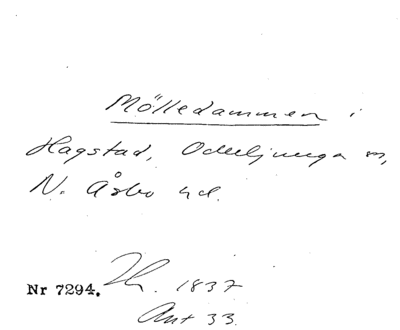 Mölledammen i
Hagstad, Oderljunga sn,
N. Åsbo hd.
Nr 7294. Th. 1837
Ant 33